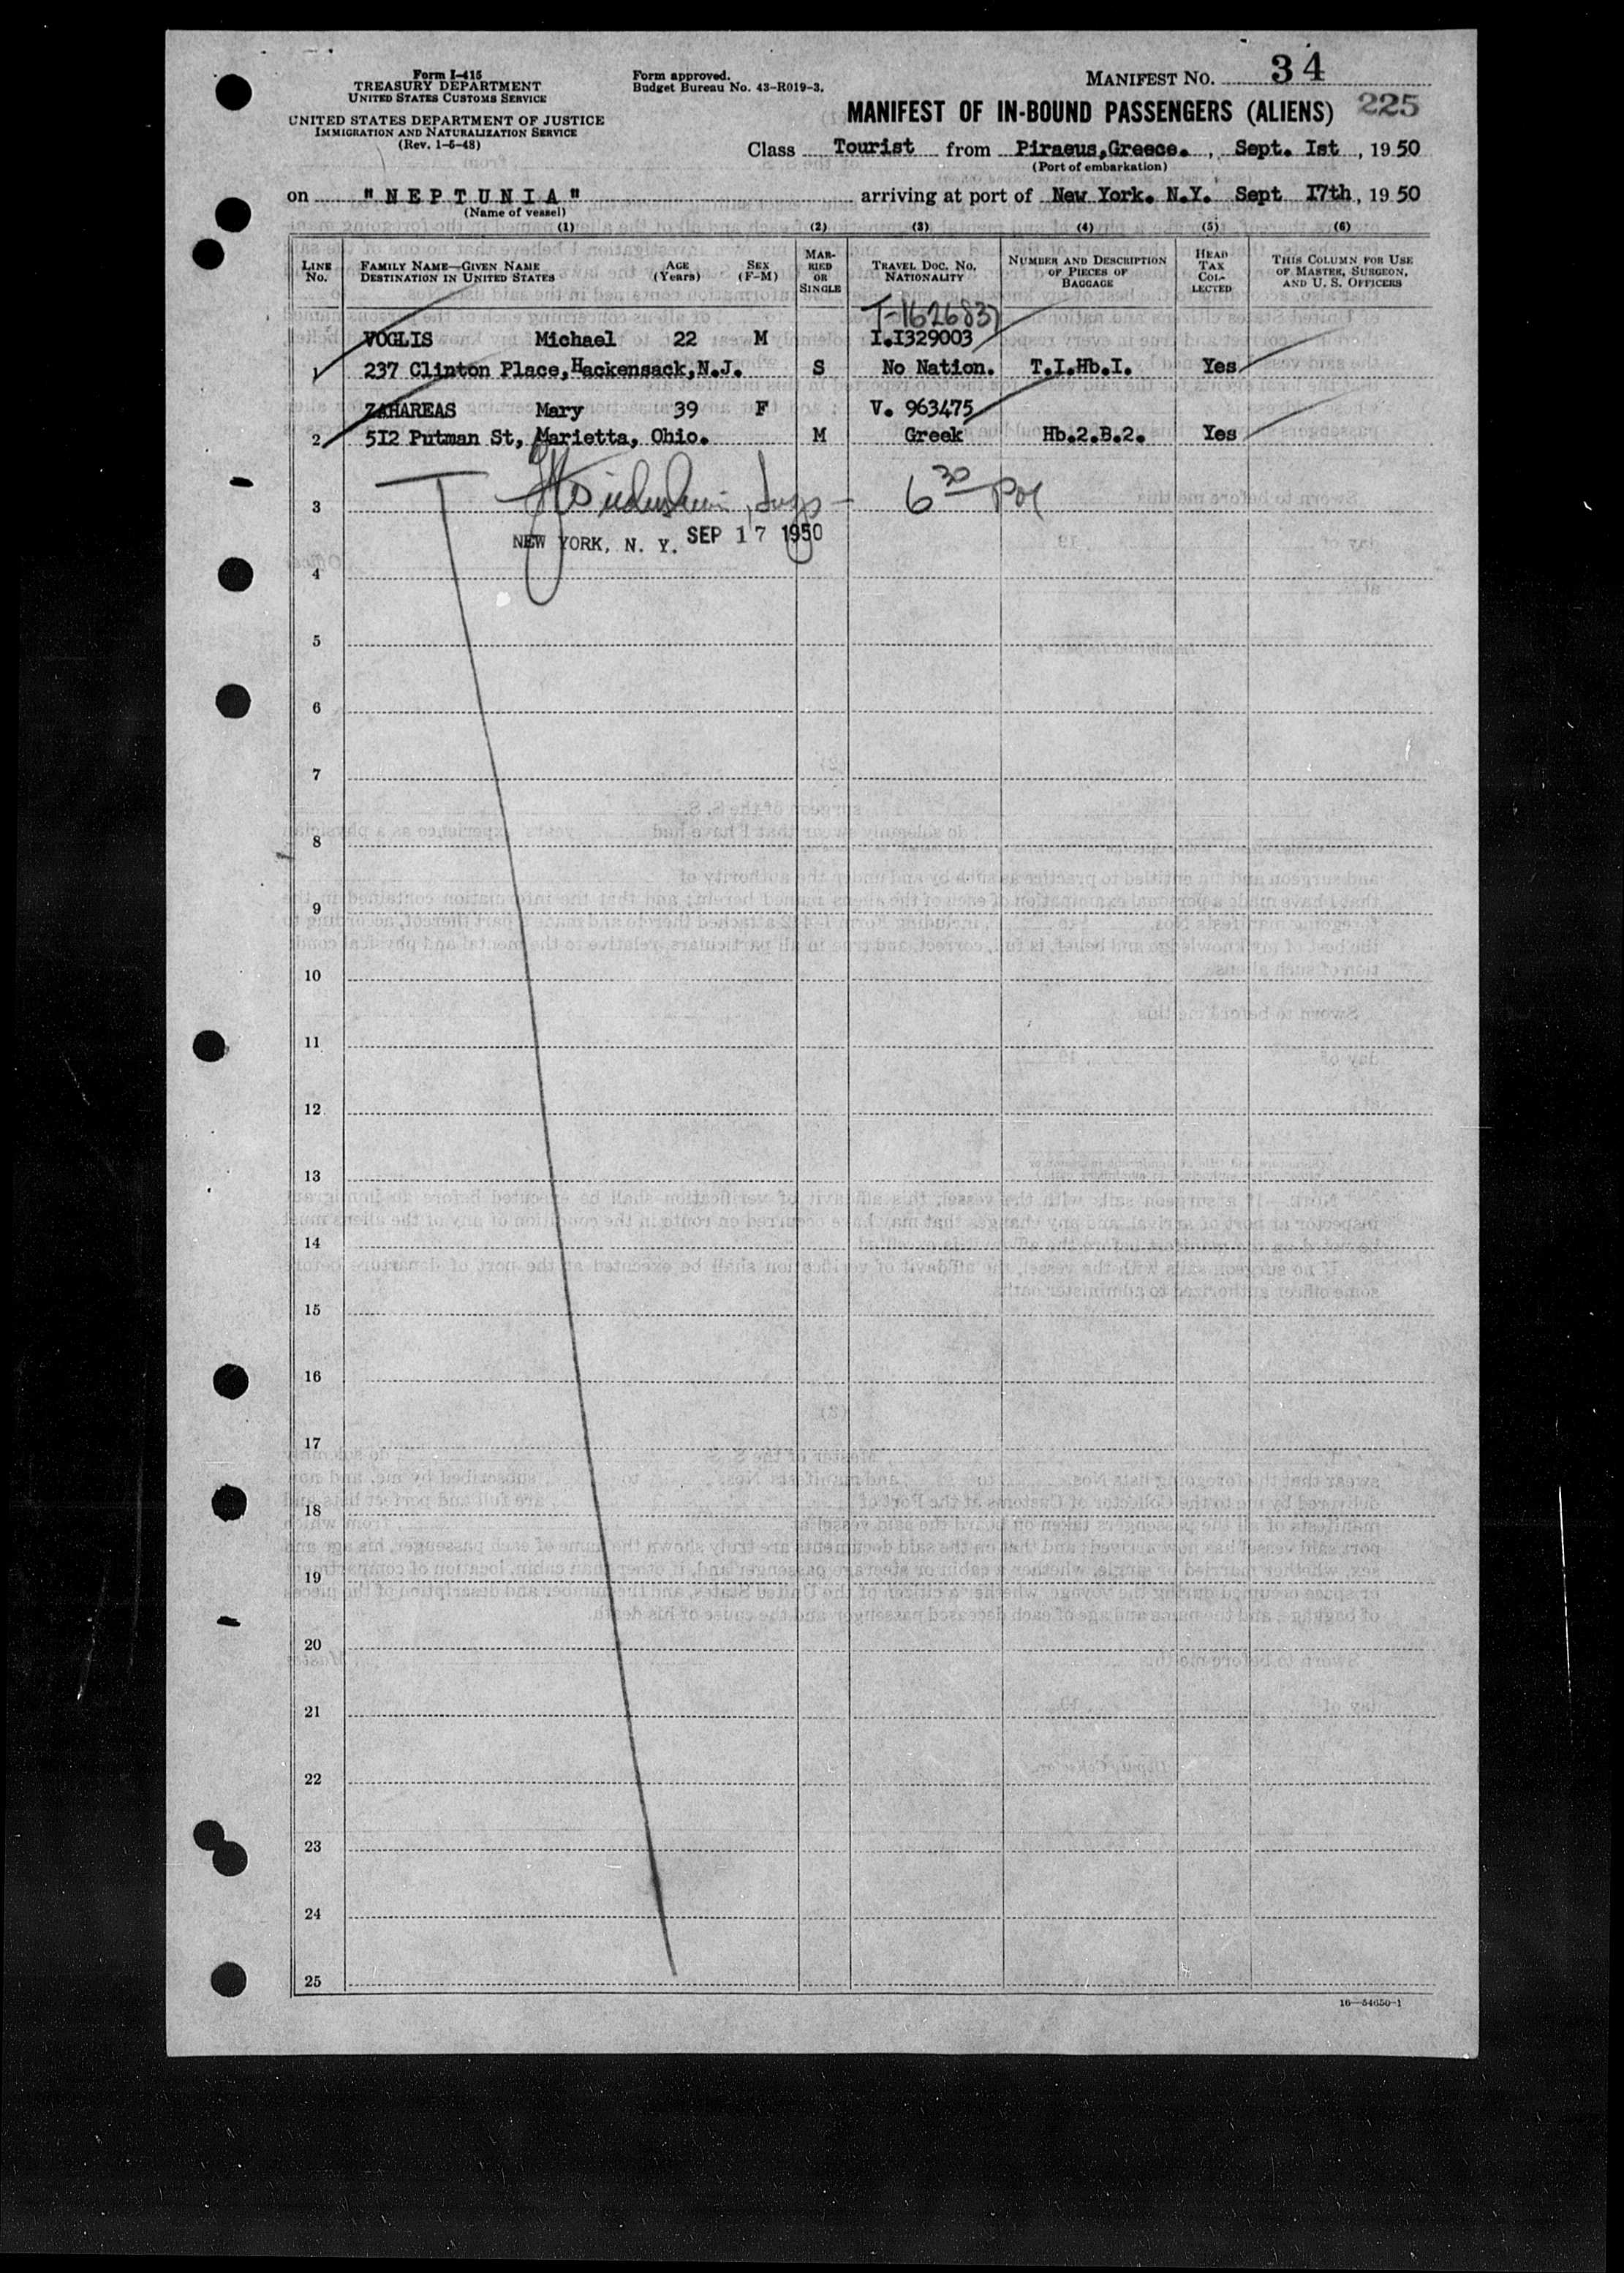 Form I-415
TREASURY DEPARTMENT
UNITED STATES CUSTOMS SERVICE
UNITED STATES DEPARTMENT OF JUSTICE
IMMIGRATION AND NATURALIZATION SERVICE
(Rev. 1-5-48)
Form approved.
Budget Bureau No. 43-R019-3.
MANIFEST NO. 34
MANIFEST OF IN-BOUND PASSENGERS (ALIENS) 225
Class Tourist from Piraeus,Greece. , Sept. Ist , 19 50
(Port of embarkation)
on "NEPTUNIA" arriving at port of New York. N.Y. Sept I7th, 19 50
(Name of vessel)
(1) (2) (3) (4) (5) (6)
LINE No. FAMILY NAME—GIVEN NAME DESTINATION IN UNITED STATES AGE (Years) SEX (F-M) MARRIED OR SINGLE TRAVEL DOC. NO. NATIONALITY NUMBER AND DESCRIPTION OF PIECES OF BAGGAGE HEAD TAX COLLECTED THIS COLUMN FOR USE OF MASTER, SURGEON, AND U. S. OFFICERS
T-1626837
VOGLIS Michael 22 M I.I329003
1 237 Clinton Place,Hackensack,N.J. S No Nation. T.I.Hb.I. Yes
ZAHAREAS Mary 39 F V. 963475
2 5I2 Putman St, Marietta, Ohio. M Greek Hb.2.B.2. Yes
3 6 30
NEW YORK, N. Y. SEP 17 1950
4
5
6
7
8
9
10
11
12
13
14
15
16
17
18
19
20
21
22
23
24
25
16—54650-1